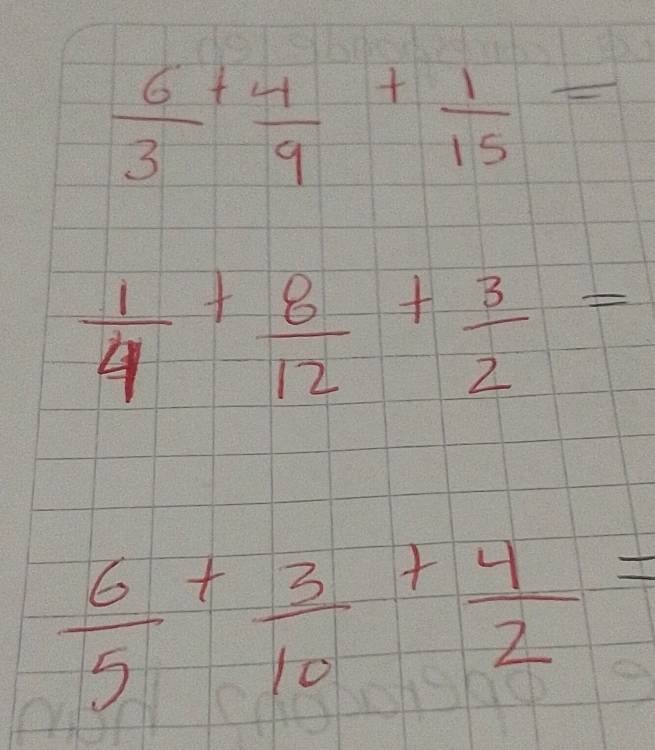 6/3 + 4/9 + 1/15 =
1/4 + 8/12 + 3/2 =
6/5 + 3/10 + 4/2 =